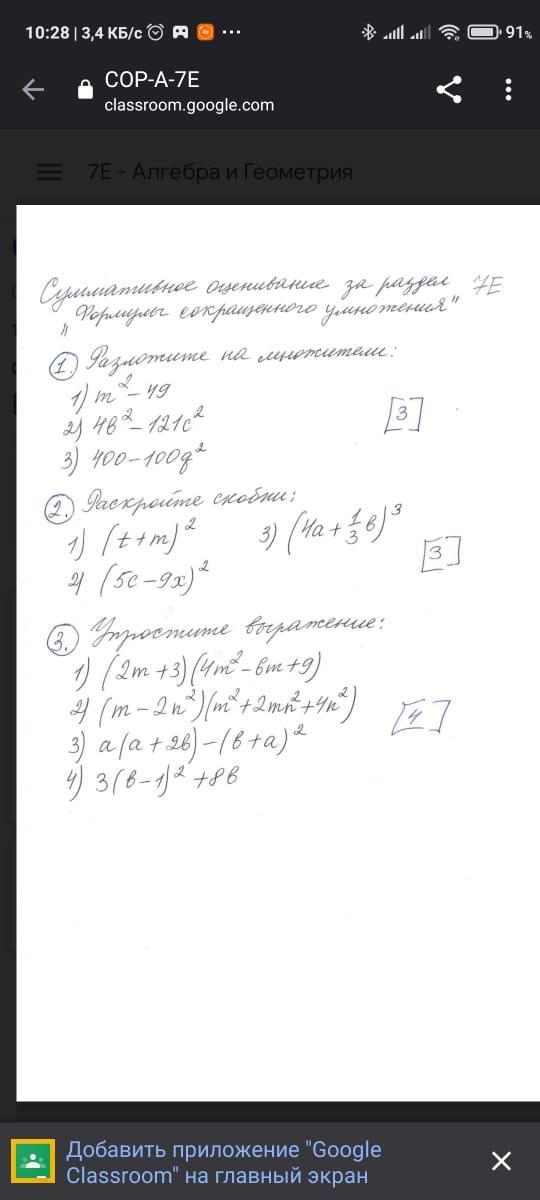 10:28 | 3,4 КБ/с ... 91%
СОР-А-7Е
classroom.google.com
7Е - Алгебра и Геометрия
Суммативное оценивание за раздел 7Е
"Формулы сокращенного умножения"
1. Разложите на множители:
1) m² - 49
2) 4в² - 121c²
3) 400 - 100q²
[3]
2. Раскройте скобки:
1) (t+m)² 3) (4a + 1/3 в)³
2) (5c - 9x)²
[3]
3. Упростите выражение:
1) (2m+3)(4m² - 6m + 9)
2) (m - 2n²)(m² + 2mn² + 4n²)
[4]
3) a(a + 2в) - (в + a)²
4) 3(в - 1)² + 8в
Добавить приложение "Google
Classroom" на главный экран